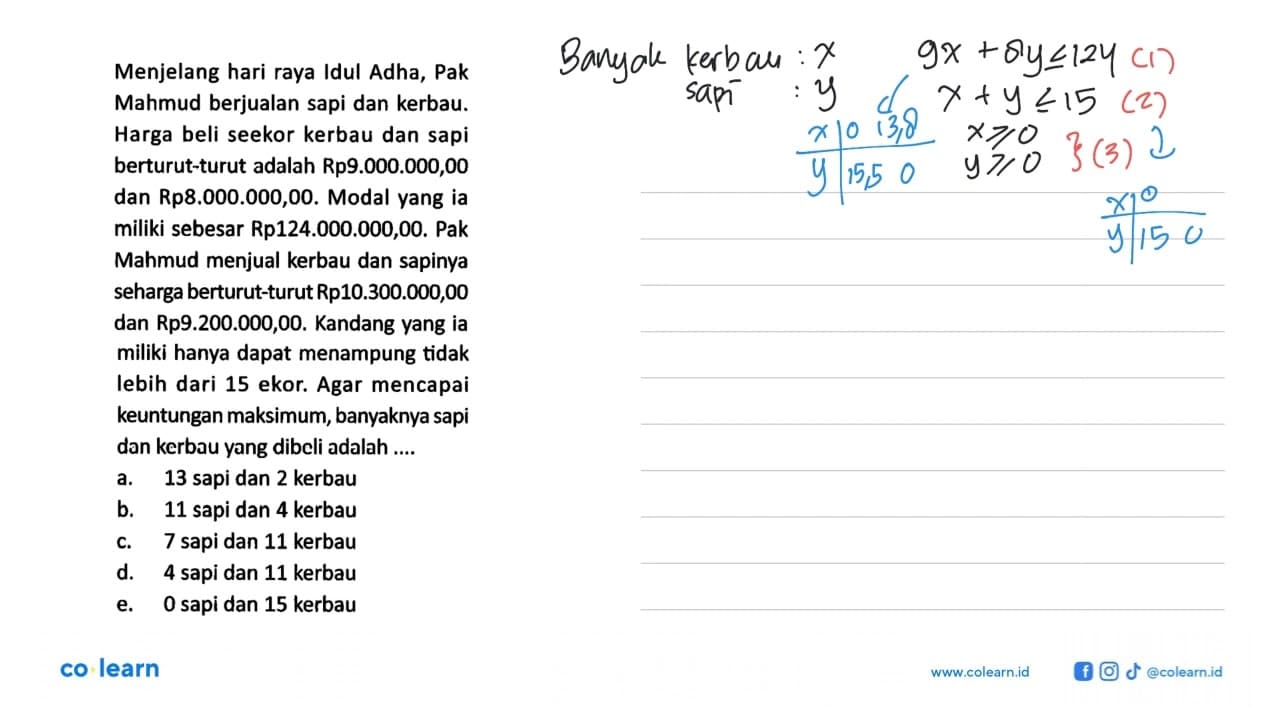 Menjelang hari raya Idul Adha, Pak
Mahmud berjualan sapi dan kerbau.
Harga beli seekor kerbau dan sapi
berturut-turut adalah Rp9.000.000,00
dan Rp8.000.000,00. Modal yang ia
miliki sebesar Rp124.000.000,00. Pak
Mahmud menjual kerbau dan sapinya
seharga berturut-turut Rp10.300.000,00
dan Rp9.200.000,00. Kandang yang ia
miliki hanya dapat menampung tidak
lebih dari 15 ekor. Agar mencapai
keuntungan maksimum, banyaknya sapi
dan kerbau yang dibeli adalah ....
a. 13 sapi dan 2 kerbau
b. 11 sapi dan 4 kerbau
c. 7 sapi dan 11 kerbau
d. 4 sapi dan 11 kerbau
e. 0 sapi dan 15 kerbau
Banyak kerbau : x
sapi : y
9x + 8y ≤ 124 (1)
x + y ≤ 15 (2)
x ≥ 0
y ≥ 0 } (3)
x | 0 13,8
y | 15,5 0
x | 0
y | 15 0
co·learn
www.colearn.id
@colearn.id